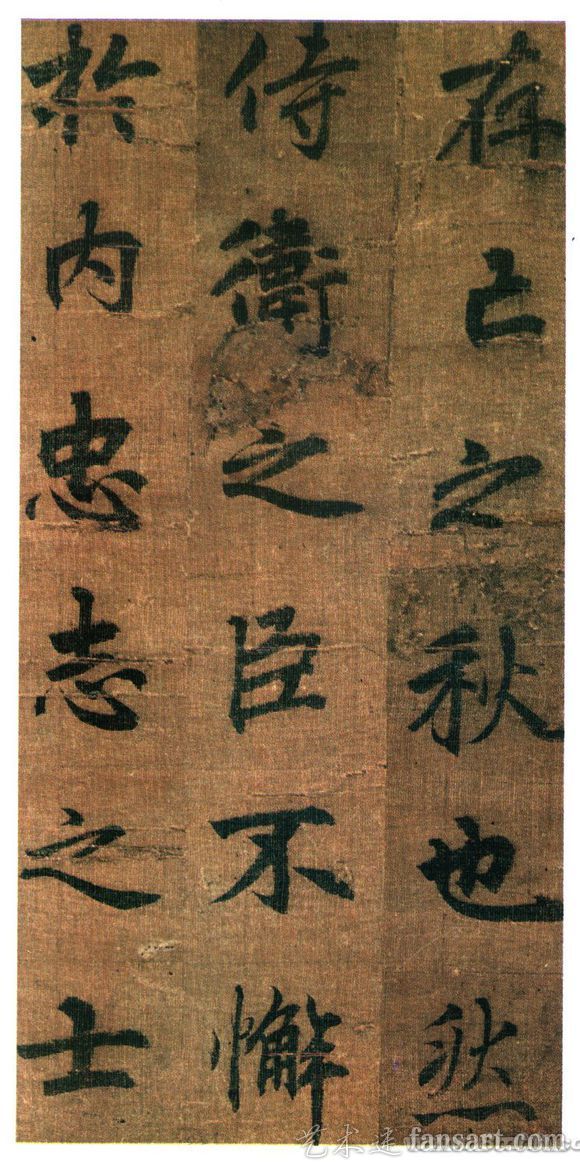 存亡之秋也然
侍衞之臣不懈
於內忠志之士
艺术迷 fansart.com